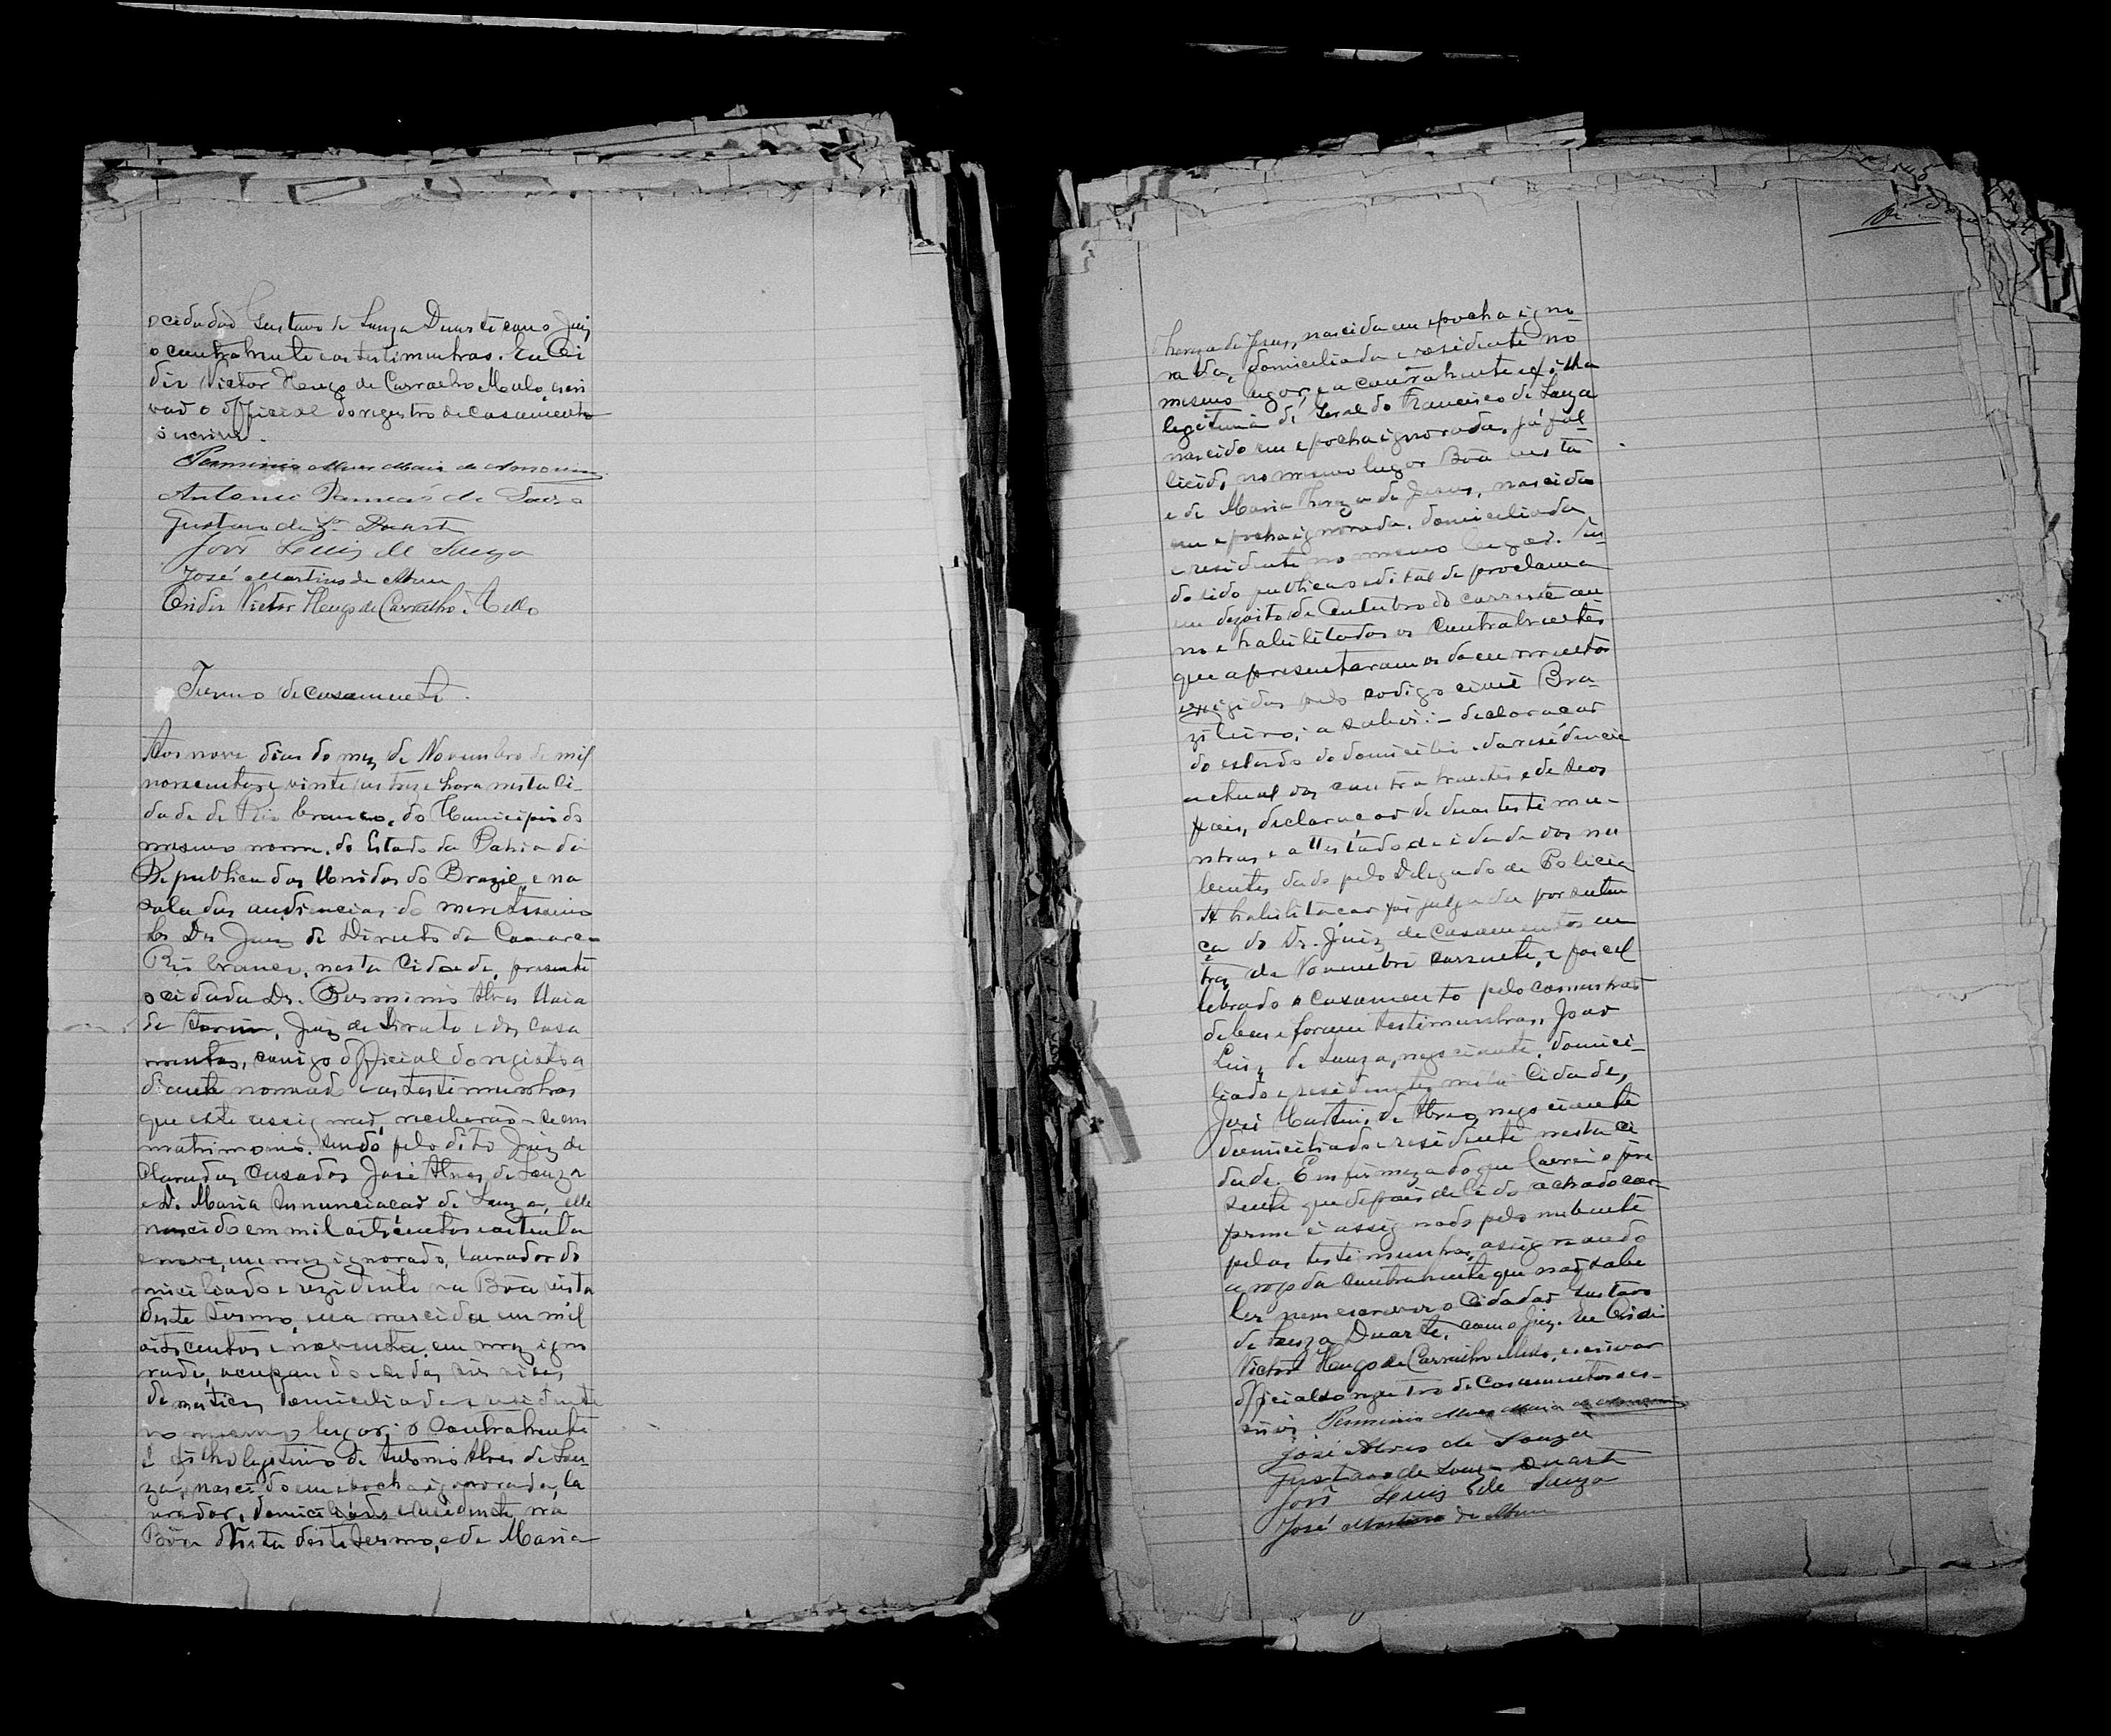 o cidadão Gustavo de Souza Duarte como Juiz
o contrahente e as testimunhas. Eu Cei
dir Victor Hugo de Carvalho Mello, escri
vão o official do registro de casamento
escrivi.
Perminio Alves Maia de Amorim
Antonio de Souza
Gustavo de Sza Duarte
João Luiz de Souza
José Martins de Abreu
Victor Hugo de Carvalho Mello
Termo de casamento.
Aos nove dias do mez de Novembro de mil
novecentos e vinte as treze hora nesta Ci-
dade de Rio branco, do Municipio do
mesmo nome, do Estado da Bahia da
Republica dos Unidos do Brazil, e na
sala das audiencias do meretissimo
Dr Juiz de Direito da Comarca
Rio branco, nesta Cidade, presente
o cidadão Dr. Perminio Alves Maia
de Juiz de Direito e dos Casa
mentos, comigo official do registro a
diante nomeado e as testimunhas
que este assignão, receberão-se em
matrimonio. Sendo pelo dito Juiz de
clarados Casados José Alves de Souza
e D. Maria Annunciação de Souza, elle
nascido em mil oitocentos e oitenta
e nove, em mez ignorado, lavrador do
miciliado e rezidente na Bôa vista
deste termo, ella nascida em mil
oitocentos e noventa, em mez igno
rado, ocupando se dos serviços
domestico, domiciliada e residente
no mesmo lugar; o Contrahente
é filho legitimo de Antonio Alves de Sou-
za, nascido em epocha ignorada, la
vrador, domiciliado e residente na
Bôa Vista deste termo, e de Maria
Thereza de Jesus, nascida em epocha igno-
rada, domiciliada e residente no
mesmo lugar, e a contrahente é filha
legitima de Geraldo Francisco de Souza
nascido em epocha ignorada, já fal-
licido no mesmo lugar Bôa vista
e de Maria Thereza de Jesus, nascida
em epocha ignorada, domiciliada
e residente no mesmo lugar. Ten-
do sido publicado edital de proclama
em dezoito de Outubro do corrente an
no e habilitados os Contrahentes
que apresentaram os documentos
exigidos pelo codigo civil Bra-
zileiro, a saber: - declaração
do estado do domicilio e da residencia
actual dos contrahentes e de seos
pais, declaração de duas testimu-
nhas e attestado de idade dos nu
bentes dado pelo Delegado de Policia
A habilitação foi julgada por senten
ça do Dr. Juiz de Casamentos em
trez de Novembro corrente, e foi cel
lebrado o casamento pelo comunhão
de bens e foram testimunhas, João
Luiz de Souza, negociante, domici-
liado e residente nesta Cidade,
José Martins de Abreu, negociante
domiciliado e residente nesta Ci
dade. Em firmeza do que lavrei o pre
sente que depois de lido achado con-
forme é assignado pelo nubente
pelas testimunhas, assignando
a rogo da contrahente que não sabe
ler nem escrever o Cidadão Gustavo
de Souza Duarte, como Juiz. Eu
Victor Hugo de Carvalho Mello, escrivão
official do registro de Casamentos es-
crivi. Perminio Alves Maia de Amorim
José Alves de Souza
Gustavo de Souza Duarte
João Luiz de Souza
José Martins de Abreu